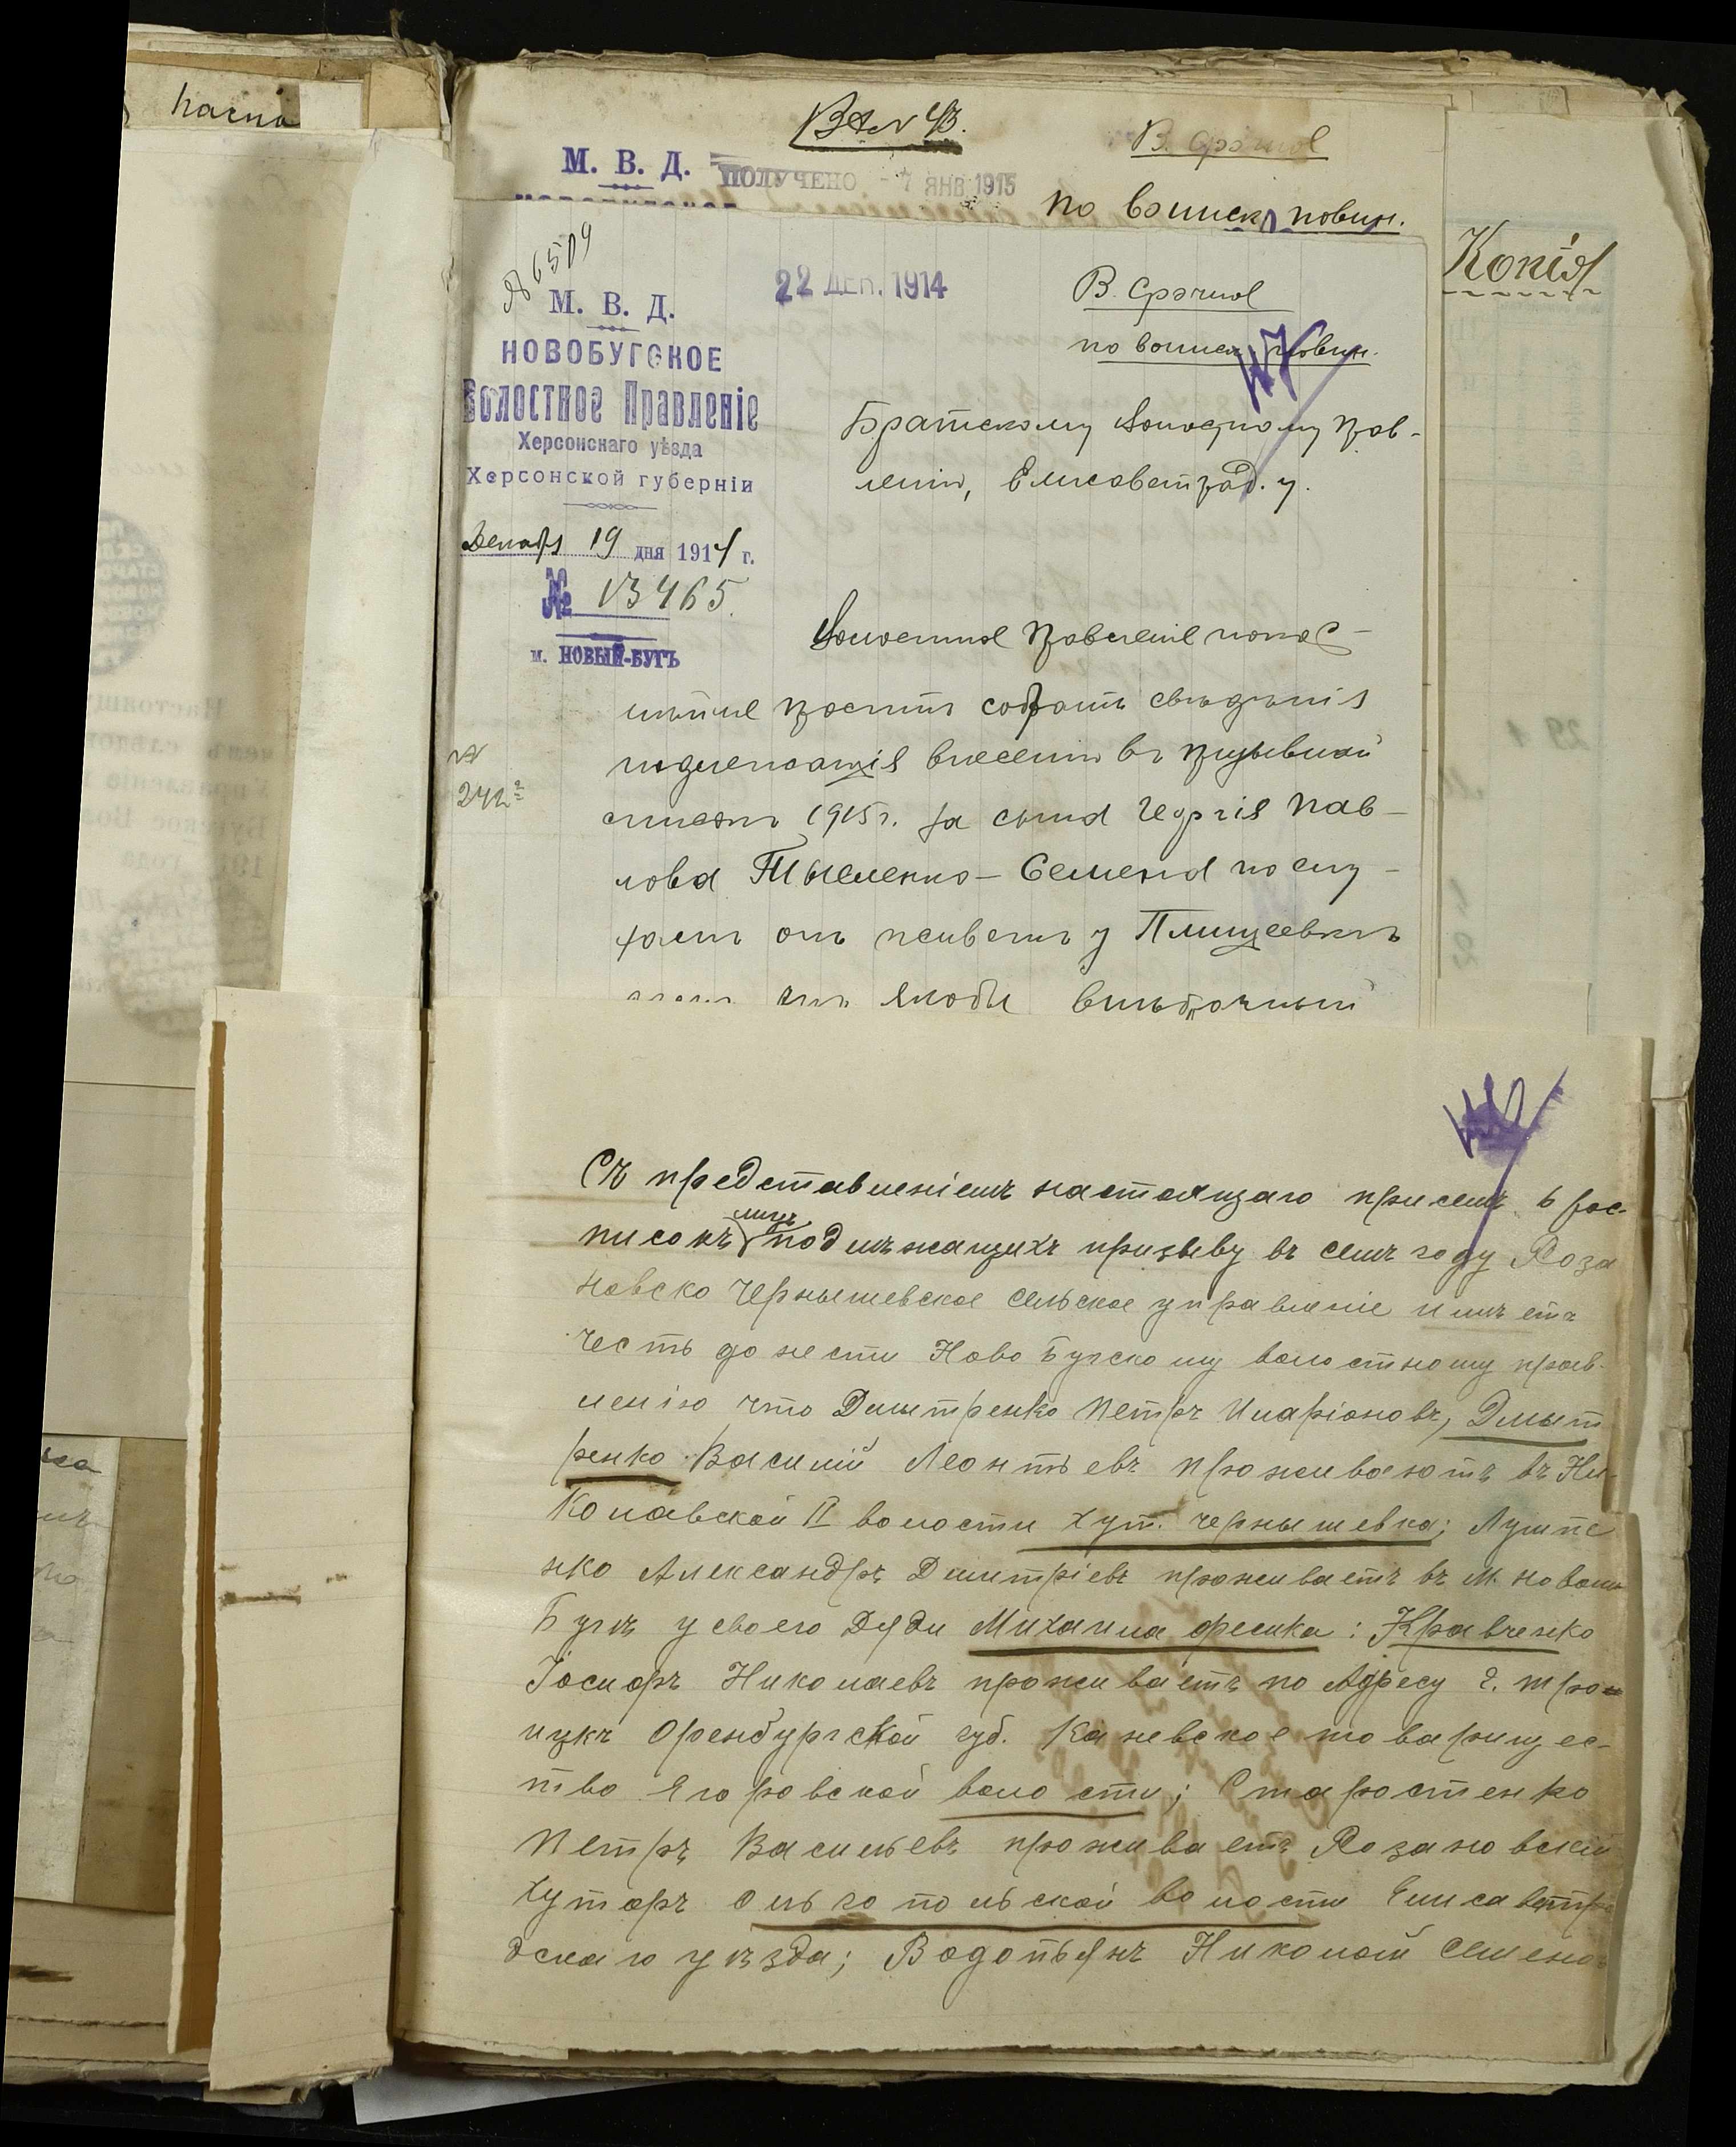 М. В. Д.
ПОЛУЧЕНО - 7 ЯНВ 1915
В. Срочное
по воинск повин.
Копія
№ 6509
22 ДЕК. 1914
В. Срочное
по воинск повин.
М. В. Д.
НОВОБУГСКОЕ
Волостное Правленіе
Херсонскаго уѣзда
Херсонской губерніи
Декабр 19 дня 1914 г.
№ 13465.
м. НОВЫЙ-БУГЪ
Братскому Волостному Прав-
ленію, Елисаветград. у.
Волостное Правленіе покор-
нѣйше проситъ собрать свѣдѣнія
подлежащія внесенію въ призывной
списокъ 1915 г. за сына Георгія Пав-
лова Тысленко - Семена по слу-
хамъ онъ живетъ у Плищеевкѣ
якобы внѣбрачный
Съ представленіемъ настоящаго при семъ 6 рос-
писокъ лицъ подлежащихъ призыву въ семъ году Роза
новско Чернышевское сельское управленіе имѣетъ
честь донести Ново Бугскому волостному прав-
ленію что Дмитренко Петръ Иларіоновъ, Дмит
ренко Василій Леонтьевъ проживаютъ въ Ни-
колавской II волости хут. чернышевка; Лушпе
нко Александръ Дмитріевъ проживаетъ въ М. Новомъ
Бугѣ у своего Дяди Михаила Фесика: Кравченко
Іосифъ Николаевъ проживаетъ по Адресу г. Тро-
ицкъ Оренбургской губ. Каневское товарищес-
тво Егоровской волости; Старостенко
Петръ Васильевъ проживаетъ Розановскій
хуторъ Ольгопольской волости Елисаветгра
дскаго уѣзда; Водопьянъ Николай Семено